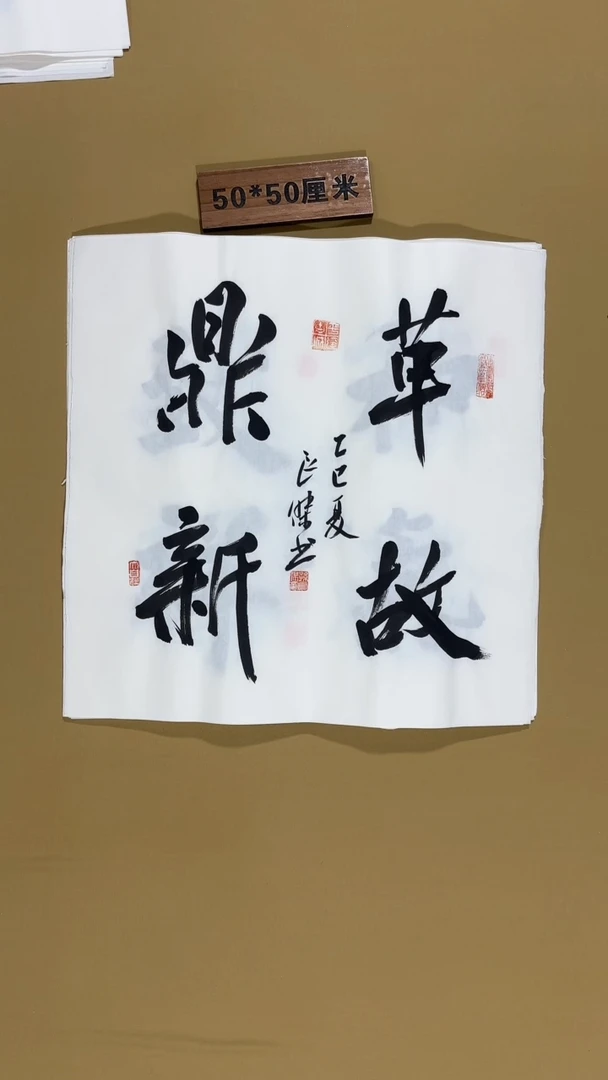 50*50厘米
革故
鼎新
乙巳夏
良傑书